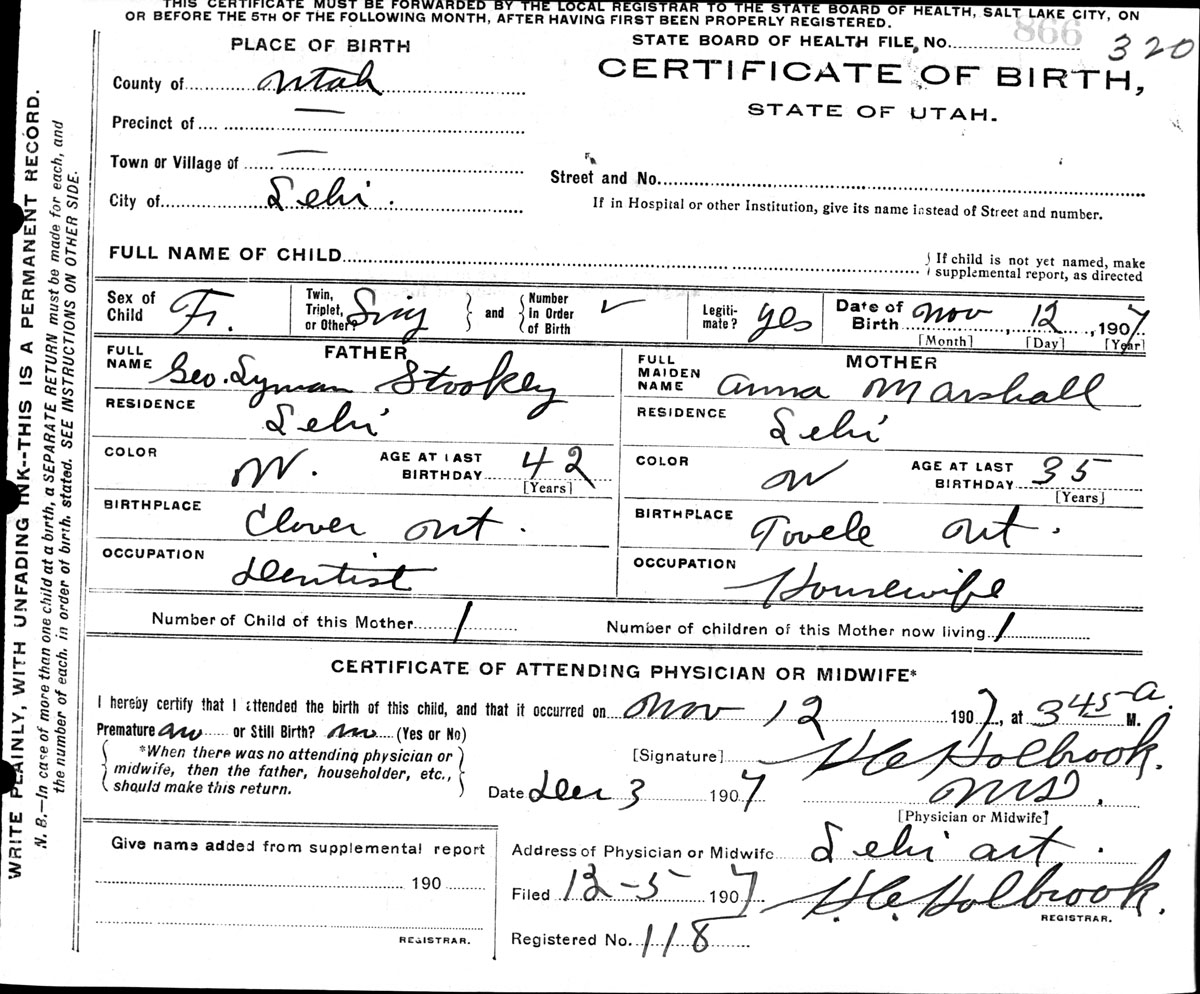 THIS CERTIFICATE MUST BE FORWARDED BY THE LOCAL REGISTRAR TO THE STATE BOARD OF HEALTH, SALT LAKE CITY, ON
OR BEFORE THE 5TH OF THE FOLLOWING MONTH, AFTER HAVING FIRST BEEN PROPERLY REGISTERED.
WRITE PLAINLY, WITH UNFADING INK--THIS IS A PERMANENT RECORD.
N. B.—In case of more than one child at a birth, a SEPARATE RETURN must be made for each, and
the number of each, in order of birth, stated. SEE INSTRUCTIONS ON OTHER SIDE.
PLACE OF BIRTH
STATE BOARD OF HEALTH FILE, No. 866 320
CERTIFICATE OF BIRTH,
STATE OF UTAH.
County of Utah
Precinct of —
Town or Village of —
City of Lehi.
Street and No.
If in Hospital or other Institution, give its name instead of Street and number.
FULL NAME OF CHILD
If child is not yet named, make
supplemental report, as directed
Sex of Child F. Twin, Triplet, or Other? Sing and Number in Order of Birth ✓ Legiti- mate? yes Date of Birth Nov, 12, 1907
[Month] [Day] [Year]
FATHER
FULL NAME Geo. Lyman Stookey
RESIDENCE Lehi
COLOR W. AGE AT LAST BIRTHDAY 42
[Years]
BIRTHPLACE Clover Ut.
OCCUPATION Dentist
MOTHER
FULL MAIDEN NAME Anna Marshall
RESIDENCE Lehi
COLOR W AGE AT LAST BIRTHDAY 35
[Years]
BIRTHPLACE Tooele Ut.
OCCUPATION Housewife
Number of Child of this Mother 1 Number of children of this Mother now living 1
CERTIFICATE OF ATTENDING PHYSICIAN OR MIDWIFE*
I hereby certify that I attended the birth of this child, and that it occurred on Nov 12 1907, at 3 45 a. M.
Premature no or Still Birth? no (Yes or No)
*When there was no attending physician or
midwife, then the father, householder, etc.,
should make this return.
[Signature] H C Holbrook.
Date Dec 3 1907 MD.
[Physician or Midwife]
Give name added from supplemental report
190
REGISTRAR.
Address of Physician or Midwife Lehi Ut.
Filed 12-5 1907 H. C. Holbrook.
REGISTRAR.
Registered No. 118